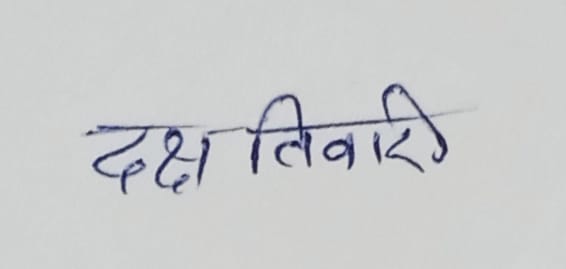 दक्ष तिवारी